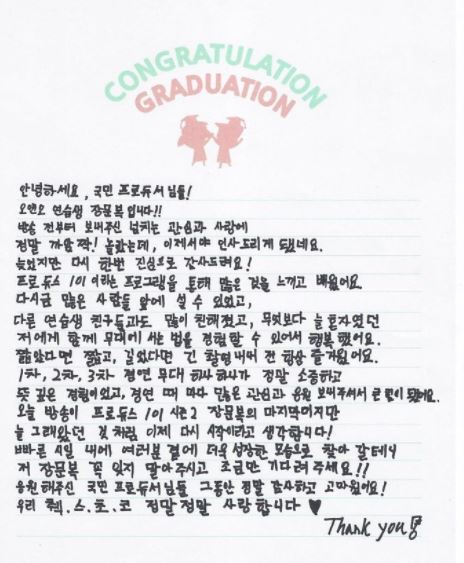 CONGRATULATION
GRADUATION
안녕하세요, 국민 프로듀서님들!
오앤오 연습생 장문복입니다!!
방송 전부터 보내주신 넘치는 관심과 사랑에
정말 깜짝! 놀랐는데, 이제서야 인사드리게 됐네요.
늦었지만 다시 한번 진심으로 감사드려요!
프로듀스 101 이라는 프로그램을 통해 많은 것을 느끼고 배웠어요.
다시금 많은 사람들 앞에 설 수 있었고,
다른 연습생 친구들과도 많이 친해졌고, 무엇보다 늘 혼자였던
저에게 함께 무대에 서는 법을 경험할 수 있어서 행복했어요.
짧았다면 짧고, 길었다면 긴 촬영내내 전 항상 즐거웠어요.
1차, 2차, 3차 경연 무대 하나하나가 정말 소중하고
뜻 깊은 경험이었고, 경연 때 마다 많은 관심과 응원 보내주셔서 큰 힘이 됐어요.
오늘 방송이 프로듀스 101 시즌2 장문복의 마지막이지만
늘 그래왔던 것 처럼 이제 다시 시작이라고 생각합니다!
빠른 시일 내에 여러분 곁에 더욱 성장한 모습으로 찾아 갈테니
저 장문복 꼭 잊지 말아주시고 조금만 기다려주세요!!
응원해주신 국민 프로듀서님들 그동안 정말 감사하고 고마웠어요!
우리 췍.스.초.코 정말정말 사랑합니다 ♥
Thank you